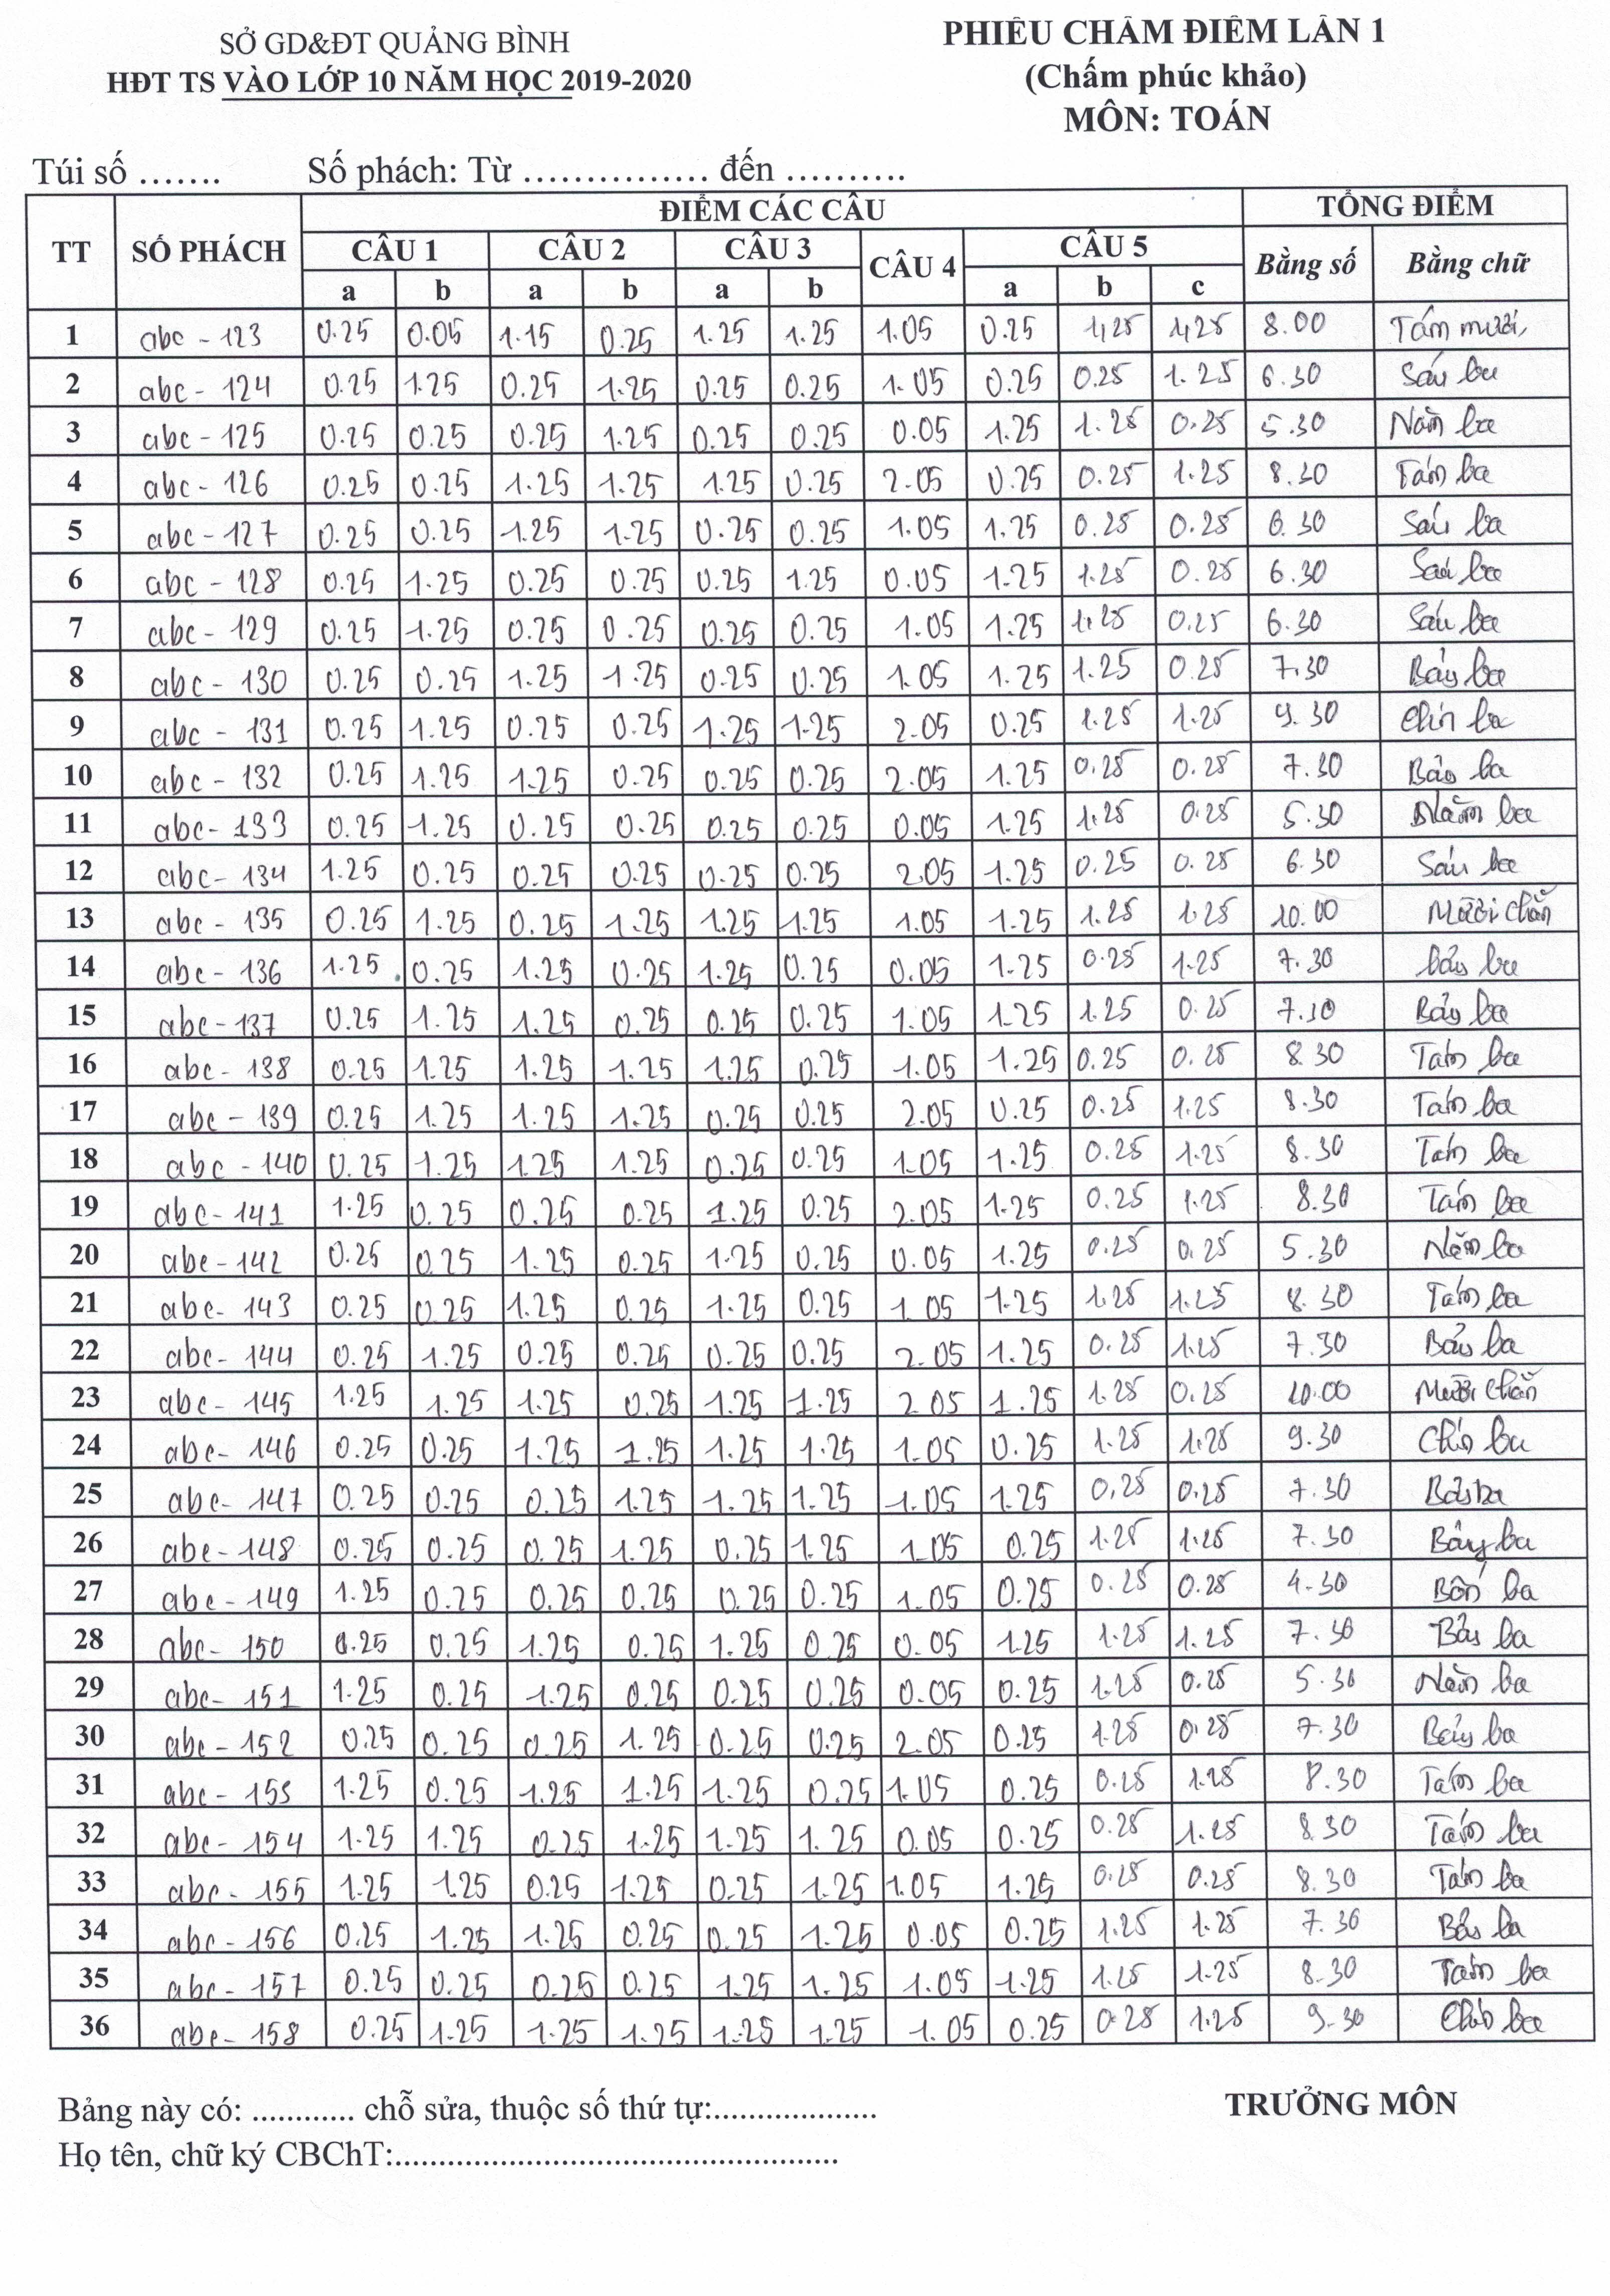 SỞ GD&ĐT QUẢNG BÌNH
HĐT TS VÀO LỚP 10 NĂM HỌC 2019-2020
PHIẾU CHẤM ĐIỂM LẦN 1
(Chấm phúc khảo)
MÔN: TOÁN
Túi số ....... Số phách: Từ ............... đến ..........
TT SỐ PHÁCH ĐIỂM CÁC CÂU TỔNG ĐIỂM
CÂU 1 CÂU 2 CÂU 3 CÂU 4 CÂU 5 Bằng số Bằng chữ
a b a b a b a b c
1 abc - 123 0.25 0.05 1.15 0.25 1.25 1.25 1.05 0.25 1,25 1,25 8.00 Tám mươi
2 abc - 124 0.25 1.25 0.25 1.25 0.25 0.25 1.05 0.25 0.25 1.25 6.30 Sáu ba
3 abc - 125 0.25 0.25 0.25 1.25 0.25 0.25 0.05 1.25 1.25 0.25 5.30 Năm ba
4 abc - 126 0.25 0.25 1.25 1.25 1.25 0.25 2.05 0.25 0.25 1.25 8.30 Tám ba
5 abc - 127 0.25 0.25 1.25 1.25 0.25 0.25 1.05 1.25 0.25 0.25 6.30 Sáu ba
6 abc - 128 0.25 1.25 0.25 0.25 0.25 1.25 0.05 1.25 1.25 0.25 6.30 Sáu ba
7 abc - 129 0.25 1.25 0.25 0.25 0.25 0.25 1.05 1.25 1.25 0.25 6.30 Sáu ba
8 abc - 130 0.25 0.25 1.25 1.25 0.25 0.25 1.05 1.25 1.25 0.25 7.30 Bảy ba
9 abc - 131 0.25 1.25 0.25 0.25 1.25 1.25 2.05 0.25 1.25 1.25 9.30 Chín ba
10 abc - 132 0.25 1.25 1.25 0.25 0.25 0.25 2.05 1.25 0.25 0.25 7.30 Bảy ba
11 abc - 133 0.25 1.25 0.25 0.25 0.25 0.25 0.05 1.25 1.25 0.25 5.30 Năm ba
12 abc - 134 1.25 0.25 0.25 0.25 0.25 0.25 2.05 1.25 0.25 0.25 6.30 Sáu ba
13 abc - 135 0.25 1.25 0.25 1.25 1.25 1.25 1.05 1.25 1.25 1.25 10.00 Mười chẵn
14 abc - 136 1.25 0.25 1.25 0.25 1.25 0.25 0.05 1.25 0.25 1.25 7.30 bảy ba
15 abc - 137 0.25 1.25 1.25 0.25 0.25 0.25 1.05 1.25 1.25 0.25 7.30 Bảy ba
16 abc - 138 0.25 1.25 1.25 1.25 1.25 0.25 1.05 1.25 0.25 0.25 8.30 Tám ba
17 abc - 139 0.25 1.25 1.25 1.25 0.25 0.25 2.05 0.25 0.25 1.25 8.30 Tám ba
18 abc - 140 0.25 1.25 1.25 1.25 0.25 0.25 1.05 1.25 0.25 1.25 8.30 Tám ba
19 abc - 141 1.25 0.25 0.25 0.25 1.25 0.25 2.05 1.25 0.25 1.25 8.30 Tám ba
20 abc - 142 0.25 0.25 1.25 0.25 1.25 0.25 0.05 1.25 0.25 0.25 5.30 Năm ba
21 abc - 143 0.25 0.25 1.25 0.25 1.25 0.25 1.05 1.25 1.25 1.25 8.30 Tám ba
22 abc - 144 0.25 1.25 0.25 0.25 0.25 0.25 2.05 1.25 0.25 1.25 7.30 Bảy ba
23 abc - 145 1.25 1.25 1.25 0.25 1.25 1.25 2.05 1.25 1.25 0.25 10.00 Mười chẵn
24 abc - 146 0.25 0.25 1.25 1.25 1.25 1.25 1.05 0.25 1.25 1.25 9.30 Chín ba
25 abc - 147 0.25 0.25 0.25 1.25 1.25 1.25 1.05 1.25 0,25 0.25 7.30 Bảy ba
26 abc - 148 0.25 0.25 0.25 1.25 0.25 1.25 1.05 0.25 1.25 1.25 7.30 Bảy ba
27 abc - 149 1.25 0.25 0.25 0.25 0.25 0.25 1.05 0.25 0.25 0.25 4.30 Bốn ba
28 abc - 150 0.25 0.25 1.25 0.25 1.25 0.25 0.05 1.25 1.25 1.25 7.30 Bảy ba
29 abc - 151 1.25 0.25 1.25 0.25 0.25 0.25 0.05 0.25 1.25 0.25 5.30 Năm ba
30 abc - 152 0.25 0.25 0.25 1.25 0.25 0.25 2.05 0.25 1.25 0.25 7.30 Bảy ba
31 abc - 153 1.25 0.25 1.25 1.25 1.25 0.25 1.05 0.25 0.25 1.25 8.30 Tám ba
32 abc - 154 1.25 1.25 0.25 1.25 1.25 1.25 0.05 0.25 0.25 1.25 8.30 Tám ba
33 abc - 155 1.25 1.25 0.25 1.25 0.25 1.25 1.05 1.25 0.25 0.25 8.30 Tám ba
34 abc - 156 0.25 1.25 1.25 0.25 0.25 1.25 0.05 0.25 1.25 1.25 7.30 Bảy ba
35 abc - 157 0.25 0.25 0.25 0.25 1.25 1.25 1.05 1.25 1.25 1.25 8.30 Tám ba
36 abc - 158 0.25 1.25 1.25 1.25 1.25 1.25 1.05 0.25 0.25 1.25 9.30 Chín ba
Bảng này có: ............ chỗ sửa, thuộc số thứ tự:................... TRƯỞNG MÔN
Họ tên, chữ ký CBChT:...................................................